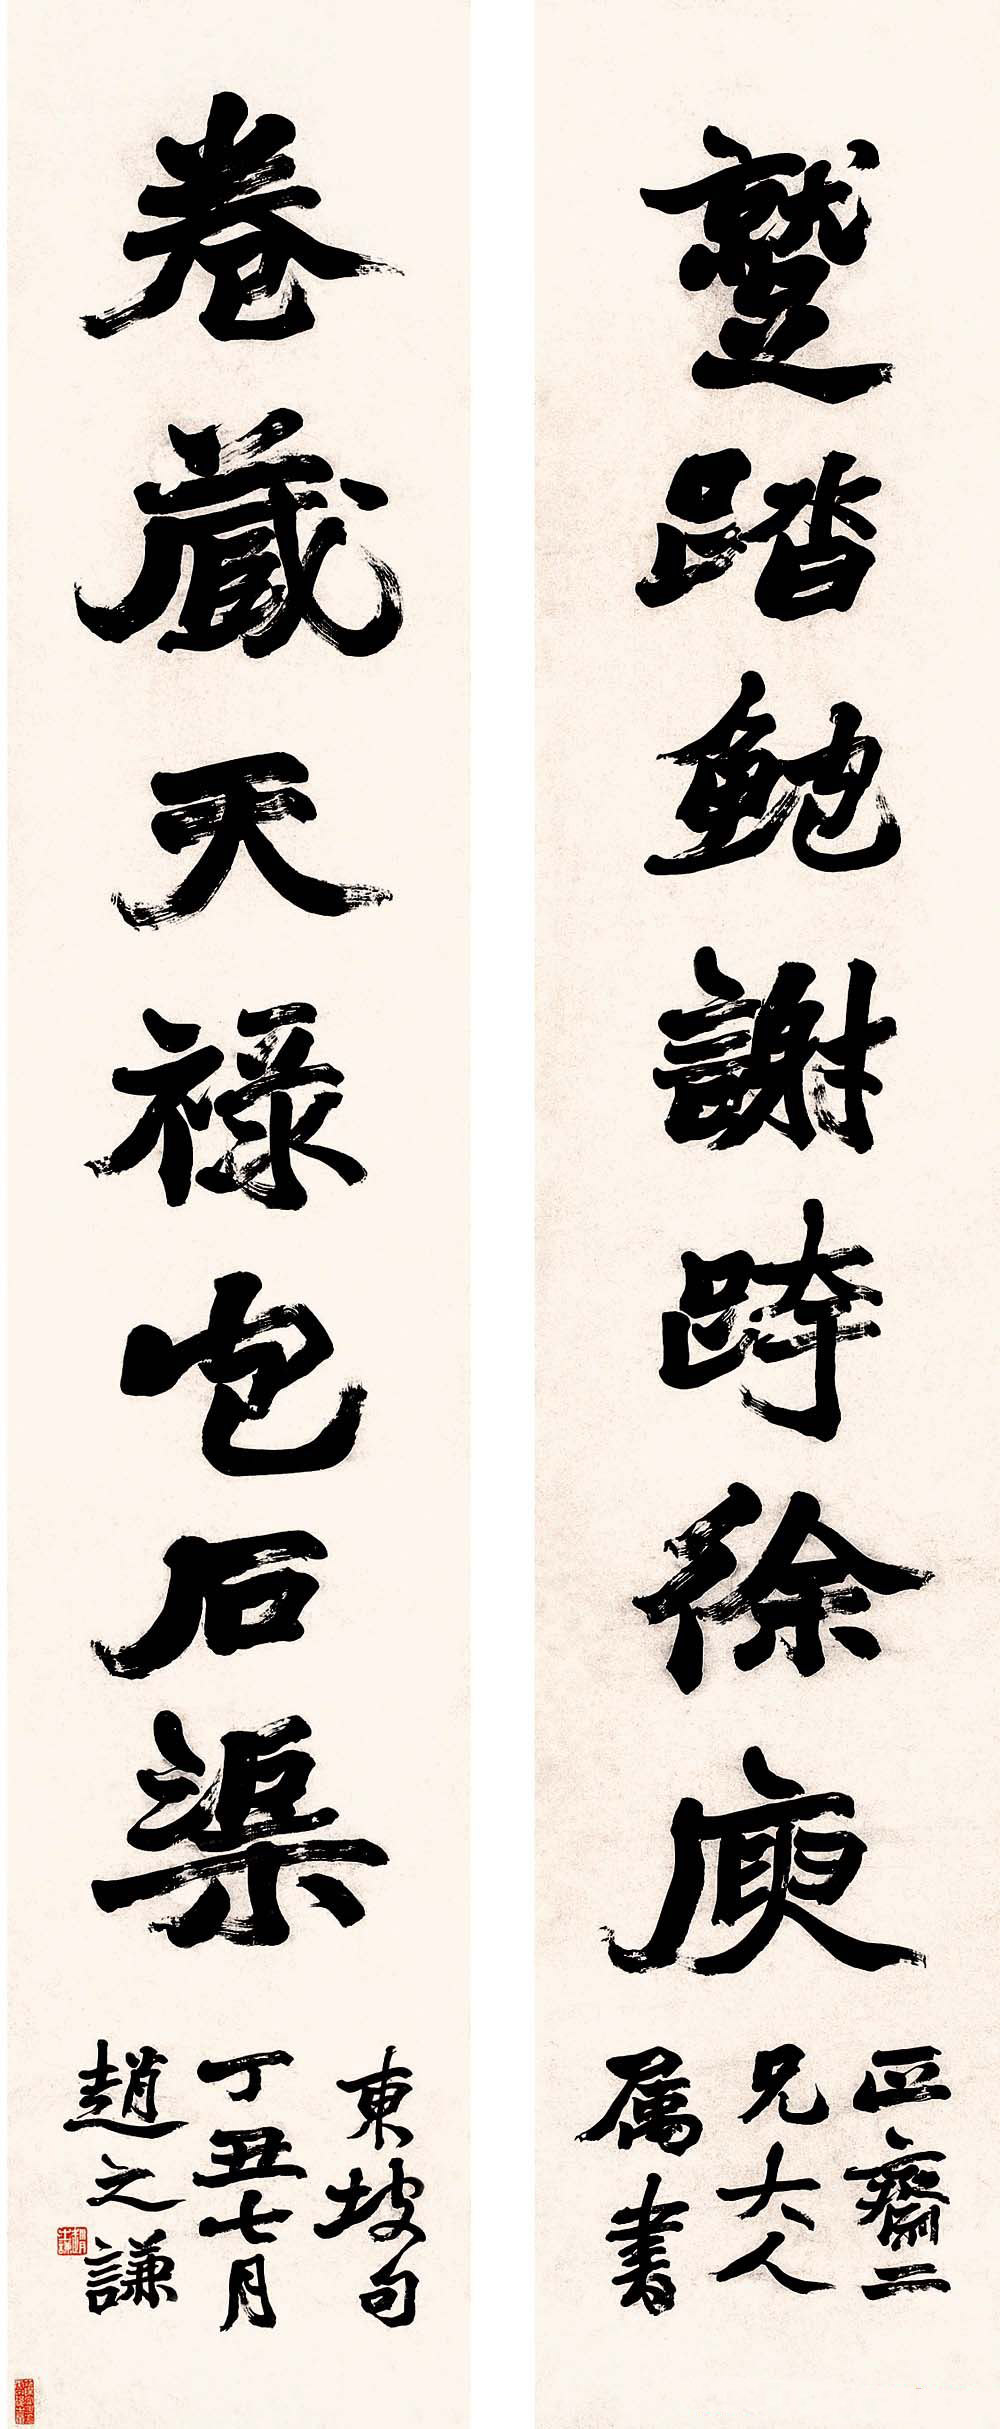 蹵踏鮑謝跨徐庾
正齋二
兄大人
属書
卷藏天祿包石渠
東坡句
丁丑七月
趙之謙